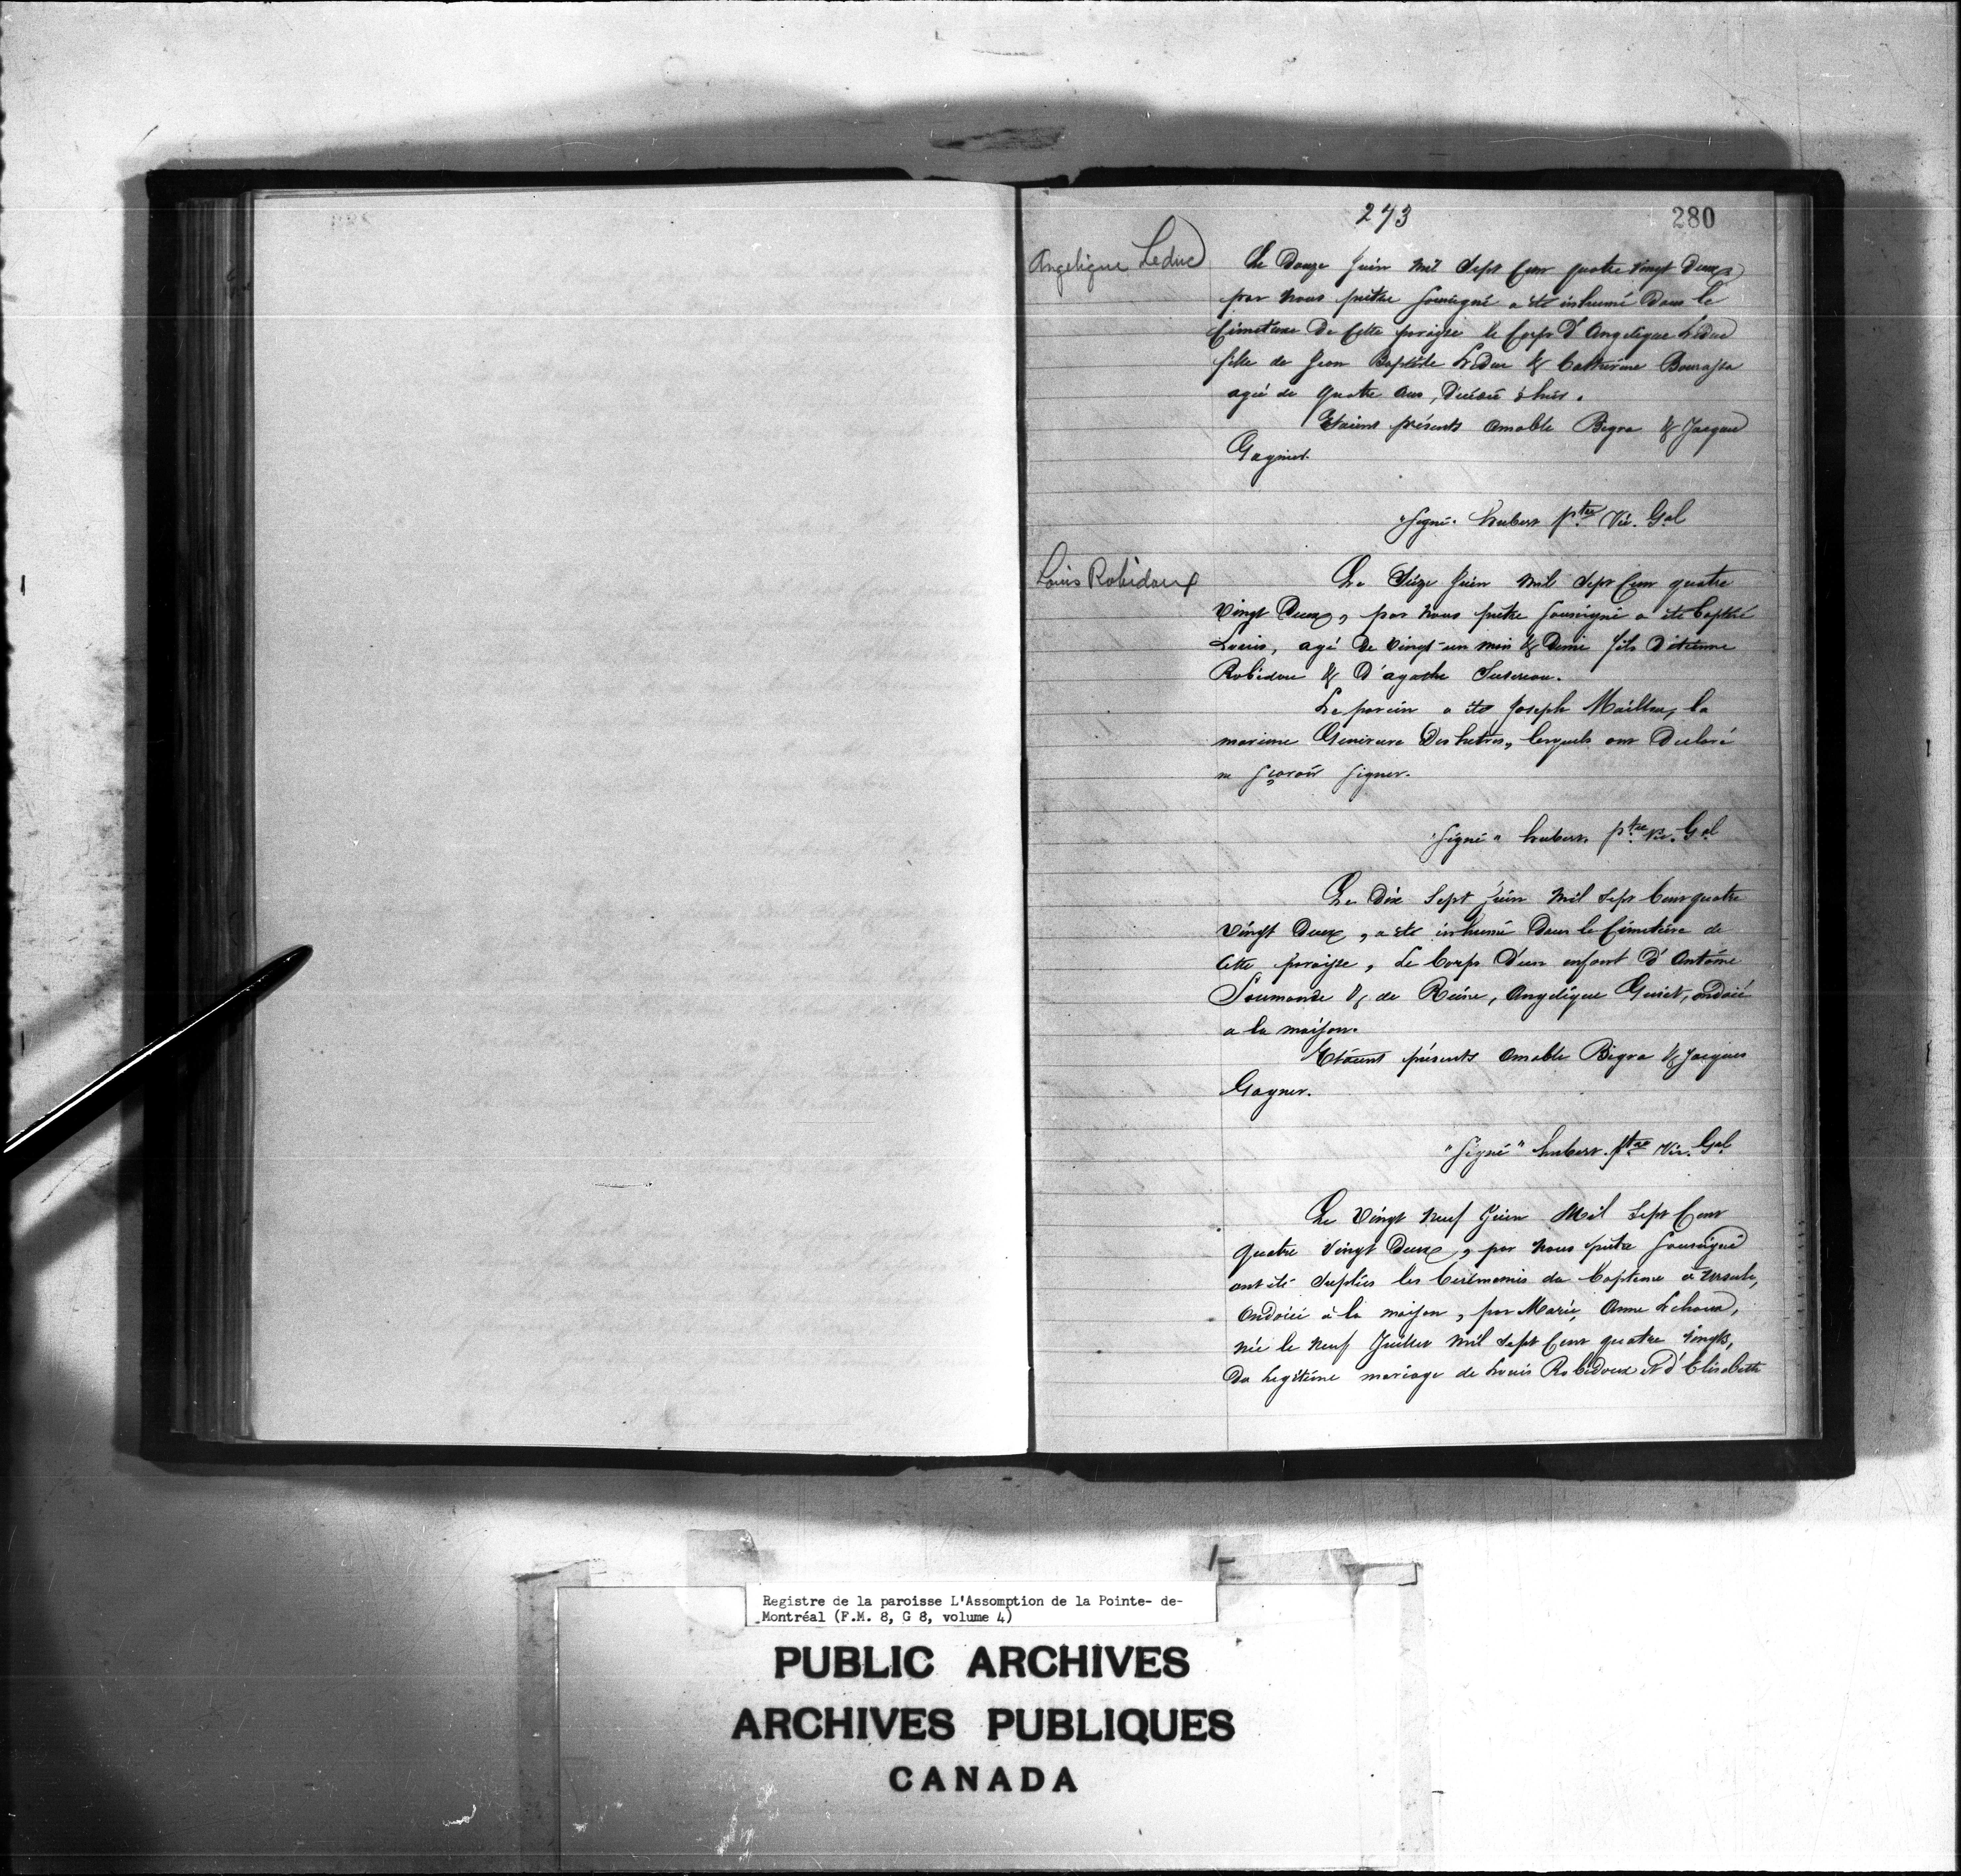 273
280
Angelique Leduc
Le Douze Juin mil Sept Cent quatre vingt Deux
par nous prêtre Sousigné a été inhumé Dans le
Cimetiere De Cette paroisse le Corps D'Angelique LeDuc
fille de Jean Baptiste LeDuc & Catherine Bourassa
agée de quatre ans, Décédé
Etaient présents Amable Bigra & Jacque
Gagnier.
"Signé" hubert ptre Vic. Gal
Louis Robidoux
Le Seize Juin mil Sept Cent quatre
Vingt Deux, par nous prêtre Sousigné a été baptisé
Louis, agé De vingt-un mois & Demi fils D'etienne
Robidou & D'agathe
Le parein a été Joseph Mailloux, la
mareine Genevieve Deshetres, lesquels ont Declaré
ne sçavoir signer.
"Signé" hubert, ptre Vic. Gal
Le Dix Sept Juin mil Sept Cent quatre
vingt Deux, a été inhumé Dans le Cimetière de
Cette paroisse, Le Corps D'un enfant D'Antoine
Soumande & de Reine, Angelique Guiet, ondoié
a la maison.
Etaient présents Amable Bigra & Jacques
Gagner.
"Signé" hubert. ptre Vic. Gal
Le Vingt neuf Juin Mil Sept Cent
Quatre Vingt Deux, par nous prêtre Sousigné
ont été Suplées les Cerémonies du Baptême à Ursule,
Ondoiée à la maison, par Marie, Anne
née le neuf Juillet mil Sept Cent quatre vingts,
Du Legitime mariage de Louis Robidoux et d'Elisabeth
Registre de la paroisse L'Assomption de la Pointe- de-
Montréal (F.M. 8, G 8, volume 4)
PUBLIC ARCHIVES
ARCHIVES PUBLIQUES
CANADA